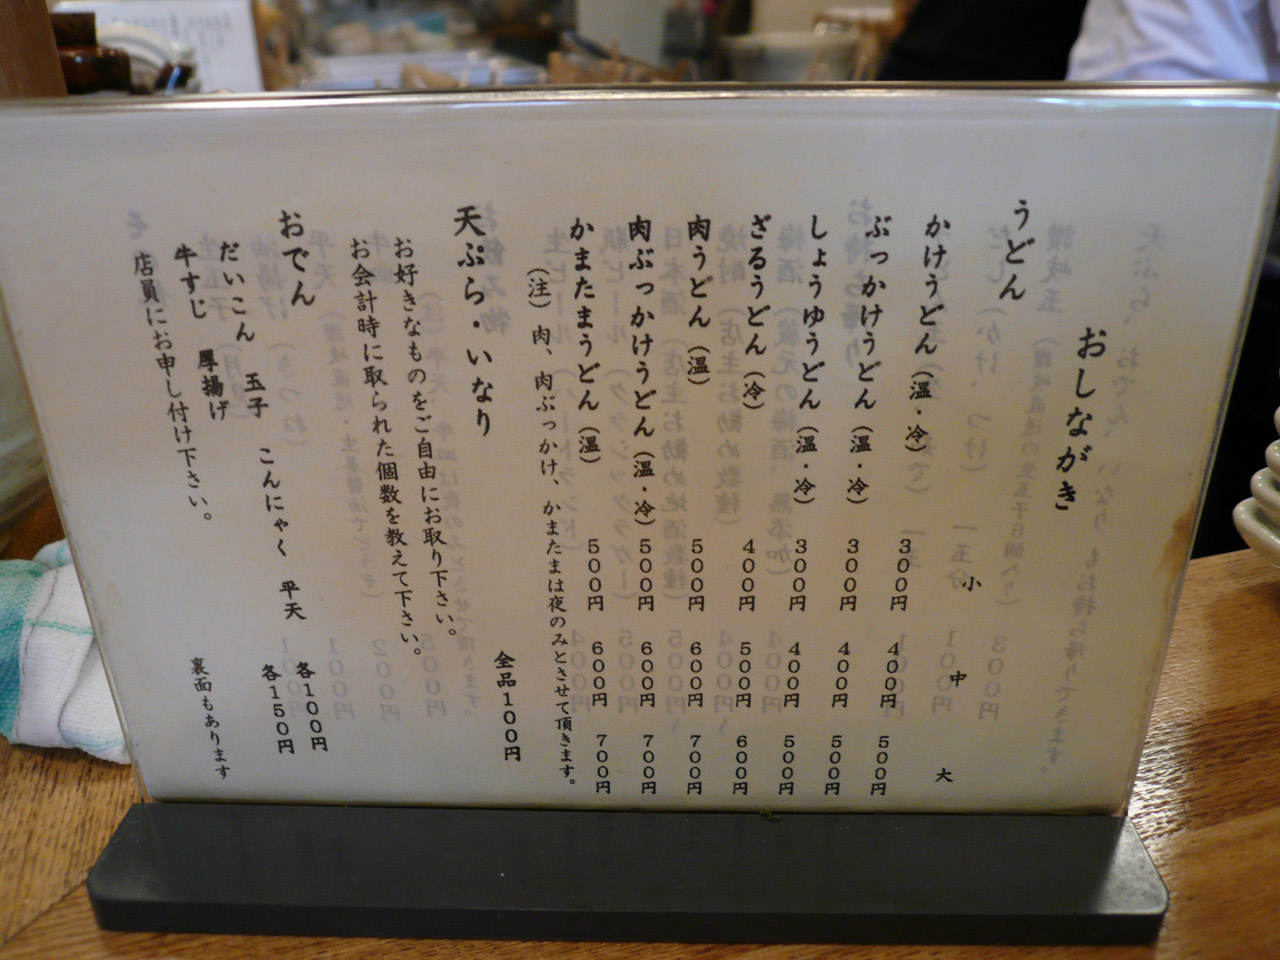 おしながき
うどん
小 中 大
かけうどん（温・冷） 300円 400円 500円
ぶっかけうどん（温・冷） 300円 400円 500円
しょうゆうどん（温・冷） 300円 400円 500円
ざるうどん（冷） 400円 500円 600円
肉うどん（温） 500円 600円 700円
肉ぶっかけうどん（温・冷） 500円 600円 700円
かまたまうどん（温） 500円 600円 700円
（注）肉、肉ぶっかけ、かまたまは夜のみとさせて頂きます。
天ぷら・いなり 全品100円
お好きなものをご自由にお取り下さい。
お会計時に取られた個数を教えて下さい。
おでん
だいこん 玉子 こんにゃく 平天 各100円
牛すじ 厚揚げ 各150円
店員にお申し付け下さい。
裏面もあります